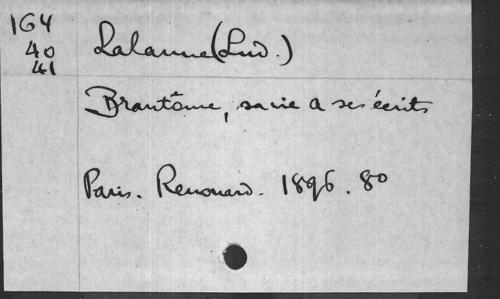 164
40
41
Lalanne (Lud.)
Brantôme, sa vie & ses écrits
Paris. Renouard. 1896. 8o